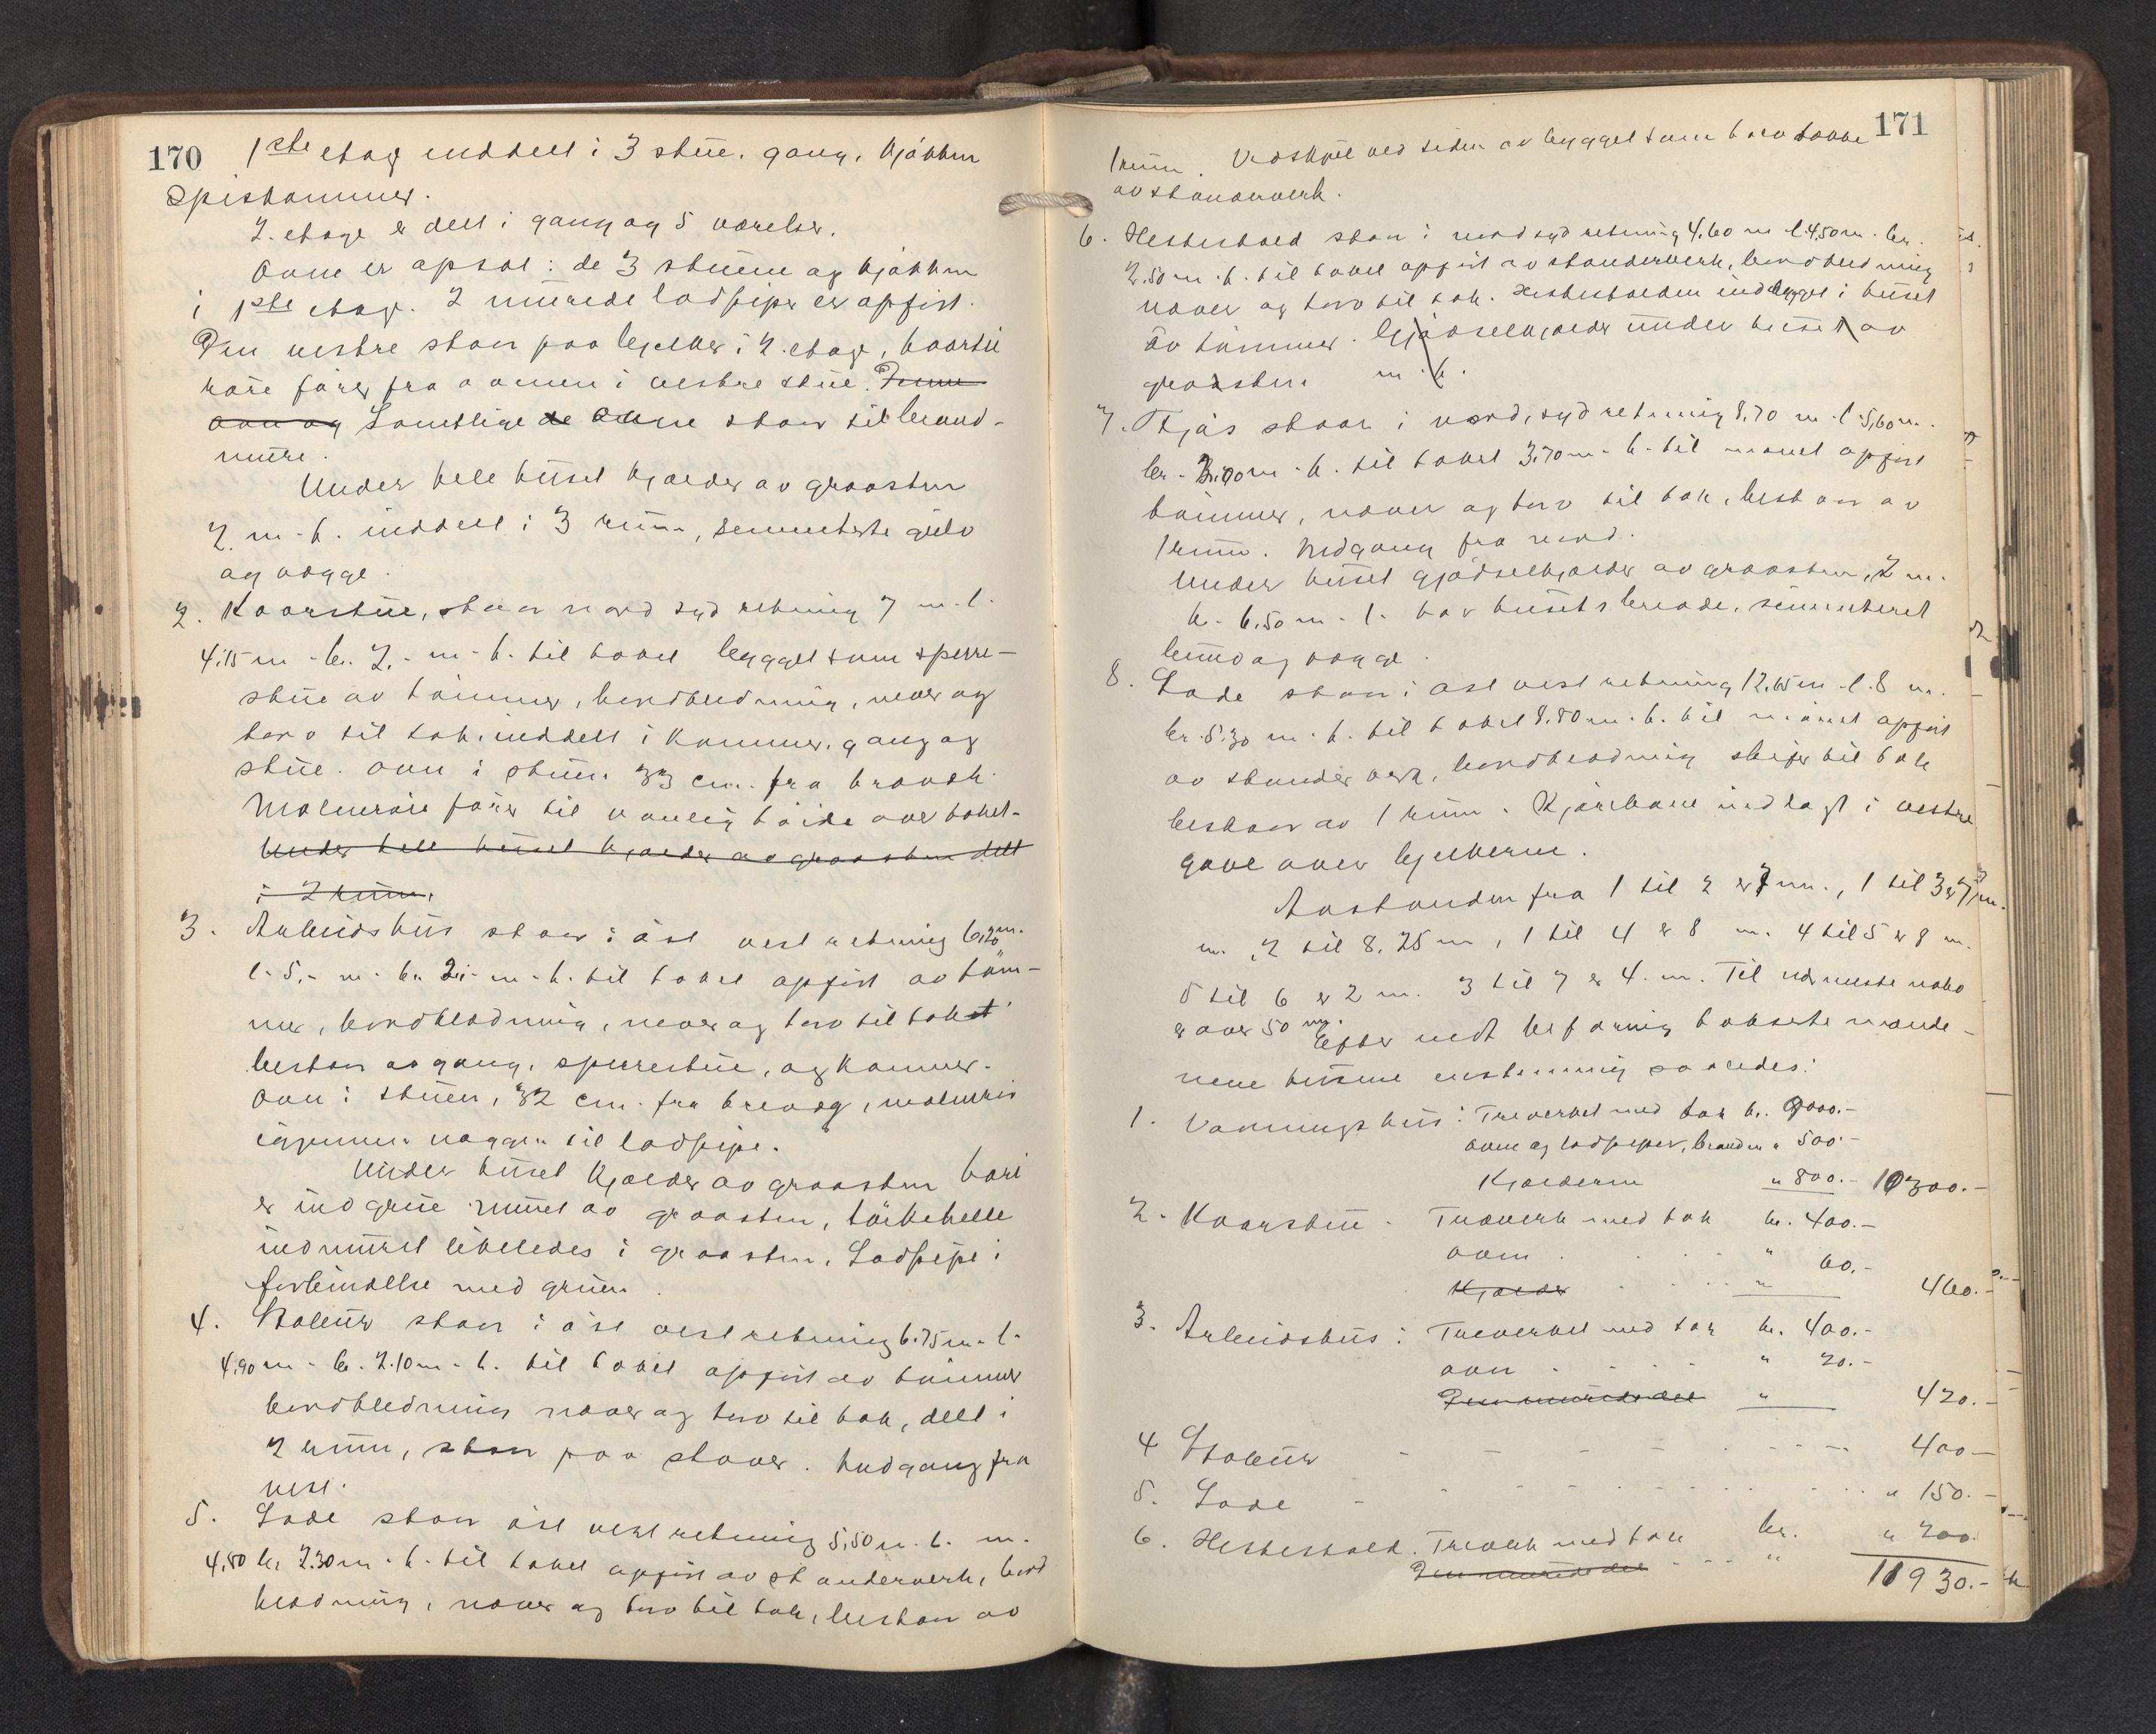 170
1ste etag inddelt i 3 stue, gang, kjøkken
Spiskammer.
2. etage er delt i gang og 5 værelser.
Ovne er opsat i de 3 stuene og kjøkken
i 1ste etag. 2 murede ladpiper er opført.
Den vestre staar paa bjelker i 2. etage, hvortil
røir fører fra ovnen i vestre stue. Denne
ovn og Samtlige de ovne staar til brand-
mure.
Under hele huset kjælder av graasten
2 m. h. inddelt i 3 rum, sementerte gulv
og vægge.
2. Kaarstue, staar nord syd retning 7 m. l.
4.15 m. br. 2.- m. h. til taket bygget som sperre-
stue av tømmer, bordklædning, never og
torv til tak. inddelt i kammer, gang og
stue. ovn i stuen 33 cm. fra trævæk.
Malmrøir fører til vanlig høide over taket.
Under hele huset kjælder av graasten delt
i 2 rum.
3. Arbeidshus staar i øst vest retning 6,20 m.
l. 5.- m. br. 2.- m. h. til taket opført av tøm-
mer, bordklædning, never og torv til taket
bestaar av gang, sperrestue, og kammer.
Ovn i stuen, 32 cm. fra trevæg, malmrør
igjennem væggen til ladpipe.
Under huset kjælder av graasten hvori
er ind grue muret av graasten, tørkehelle
indmuret likeledes i graasten, Ladpipe i
forbindelse med gruen.
4. Stabur staar i øst vest retning 6.75 m. l.
4,90 m. br. 2.10 m. h. til taket opført av tømmer
bordklædning never og torv til tak, delt i
2 rum, staar paa staver. Indgang fra
vest.
5. Lade staar øst vest retning 5,50 m. l. m.
4,80 br. 2.30 m. h. til taket opført av standerverk, bord
klædning, never og torv til tak, bestaar av
171
1 rum. Vedskjul ved siden av bygget som halvtække
av standerverk.
6. Hestestald staar i nord syd retning 4,60 m. l. 4,50 m. br.
2.50 m. h. til taket opført av standerverk, bordklædning
never og torv til tak. Hestestalden indbygget i huset
av tømmer. Gjødselkjælder under huset av
graasten m. h.
7. Fjøs staar i nord, syd retning 8,70 m. l. 5,60 m.
br. m. h. til taket 3.70 m. h. til mønet opført
tømmer, never og torv til tak, bestaar av
1 rum. Indgang fra nord.
Under huset gjødselkjælder av graasten, 2 m.
h. 6,50 m. l. har husets bredde, sementeret
bund og vægge.
8. Lade staar i øst vest retning 12.65 m. l. 8 m.
br. 5.30 m. h. til taket 8.80 m. h. til mønet opført
av standerverk, bordklædning skifer til tak
bestaar av 1 rum. Kjørebane indlagt i vestre
gavl over bjelkerne.
Avstanden fra 1 til 2 er 7 m., 1 til 3 er 7, m.
m. , 2 til 8, 25 m, 1 til 4 er 8 m. 4 til 5 er 8 m.
5 til 6 er 2 m. 3 til 7 er 4. m. Til nærmeste nabo
er over 50 m.
Efter endt befaring takserte mænde-
nene husene enstemmig saaledes:
1. Vaaningshus: Treverket med tak kr. 9000.-
ovne og ladpiper, brandm " 500.-
Kjælderen " 800.- 10300.-
2. Kaarstue. Treverk med tak kr. 400.-
ovn . . . " 60.-
Kjælder . . . . " 460.-
3. Arbeidshus: Treverket med tak kr. 400.-
ovn . . . . " 20.-
Den murede del " 420.-
4 Stabur - - - - - - - 400-
5. Lade - - - - - - - " 150.-
6. Hestestald. Treverk med tak kr. " 200.
Den murede del - - - "
11930.-